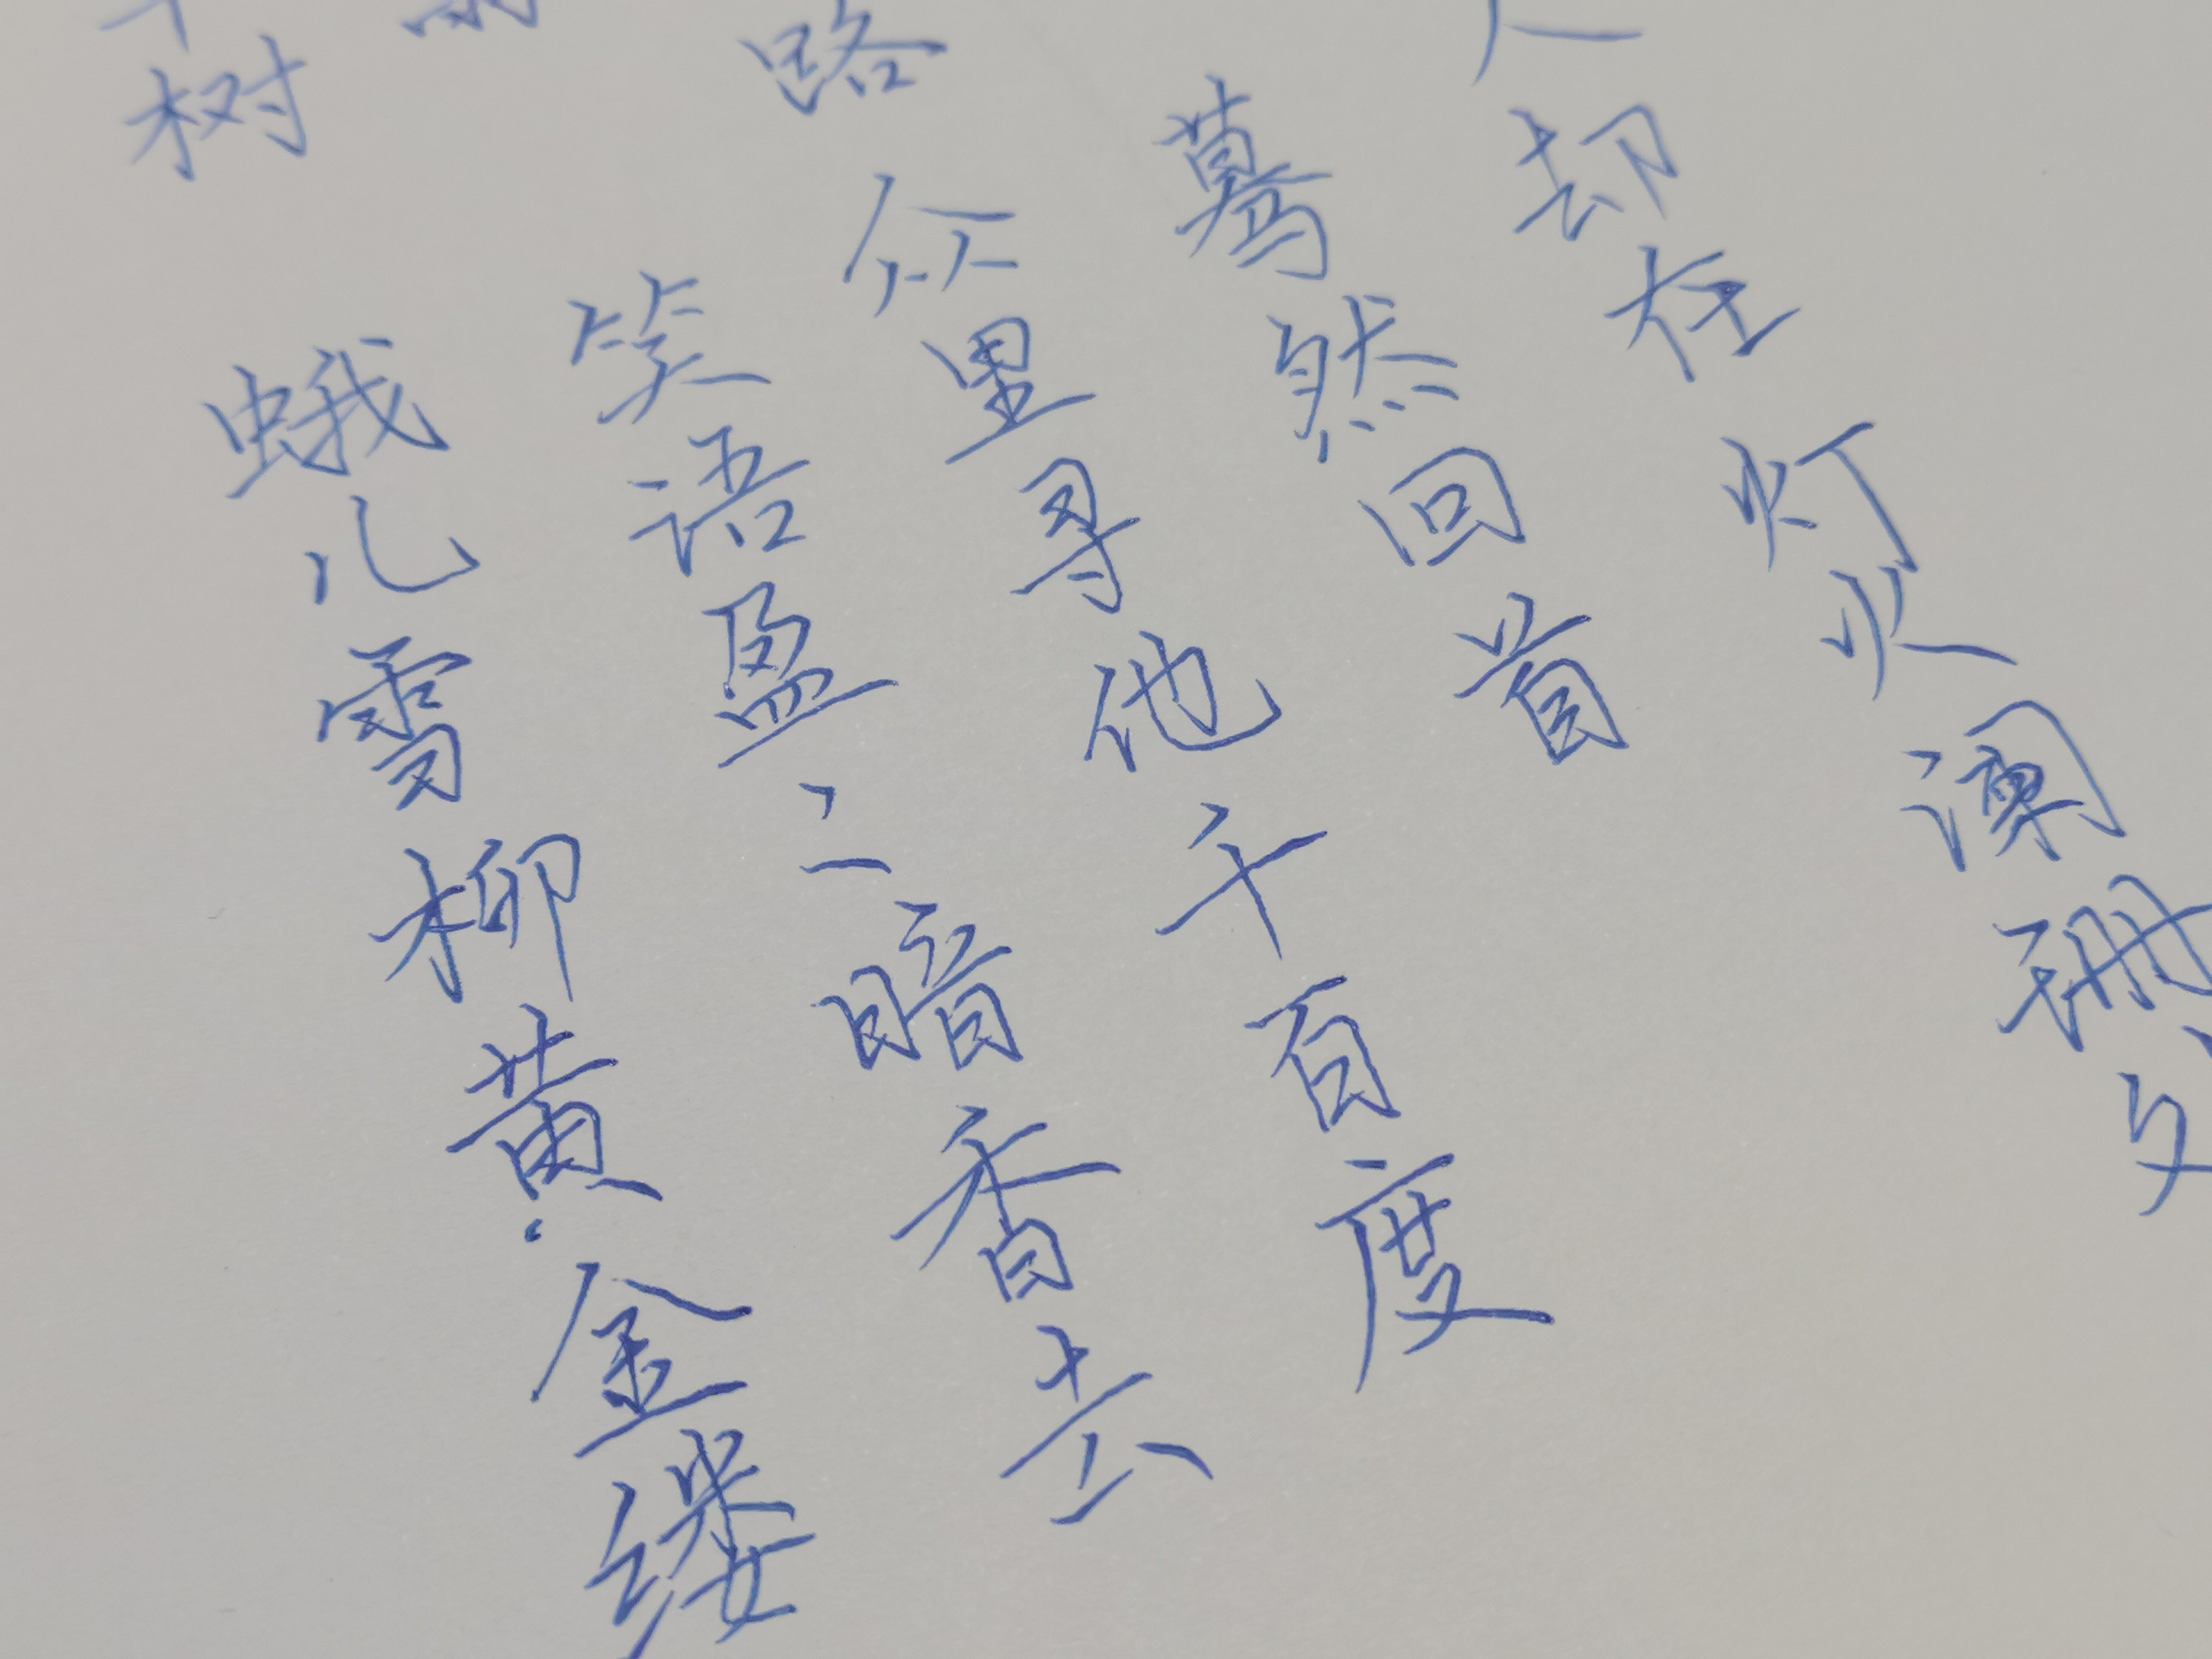 树 蛾儿雪柳黄金缕
笑语盈々暗香去
路 众里寻他千百度
蓦然回首
人却在灯火阑珊